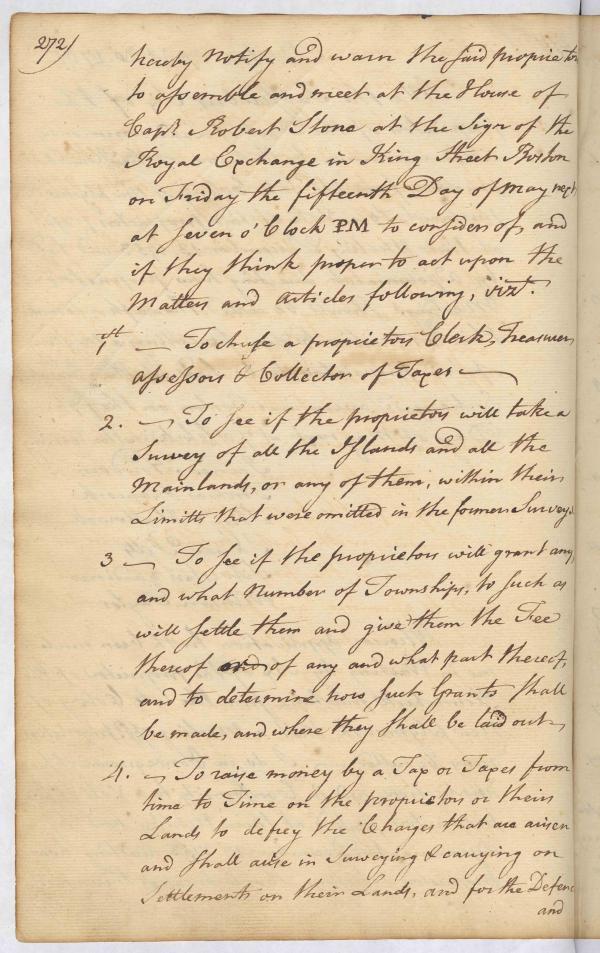 272)
hereby Notify and warn the said proprietors
to assemble and meet at the House of
Capt. Robert Stone at the Sign of the
Royal Exchange in King Street Boston
on Friday the fifteenth Day of May next
at seven o'Clock PM to consider of, and
if they think proper to act upon the
Matters and Articles following, vizt.
1st — To chuse a proprietors Clerk, Treasurer,
Assessors & Collector of Taxes —
2. — To see if the proprietors will take a
Survey of all the Islands and all the
Mainlands, or any of them, within their
Limitts that were omitted in the former Survey.
3 — To see if the proprietors will grant any,
and what Number of Townships, to such as
will settle them and give them the Fee
thereof and of any and what part thereof,
and to determine how such Grants shall
be made, and where they shall be laid out —
4. — To raise money by a Tax or Taxes from
time to Time on the proprietors or their
Lands to defrey the Charges that are arisen
and shall arise in Surveying & carrying on
Settlements on their Lands, and for the Defence
and